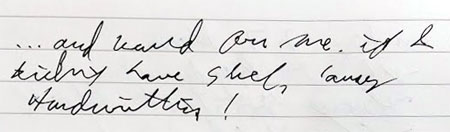 ... and would on me. if I
didn't have such lousy
Handwritting!